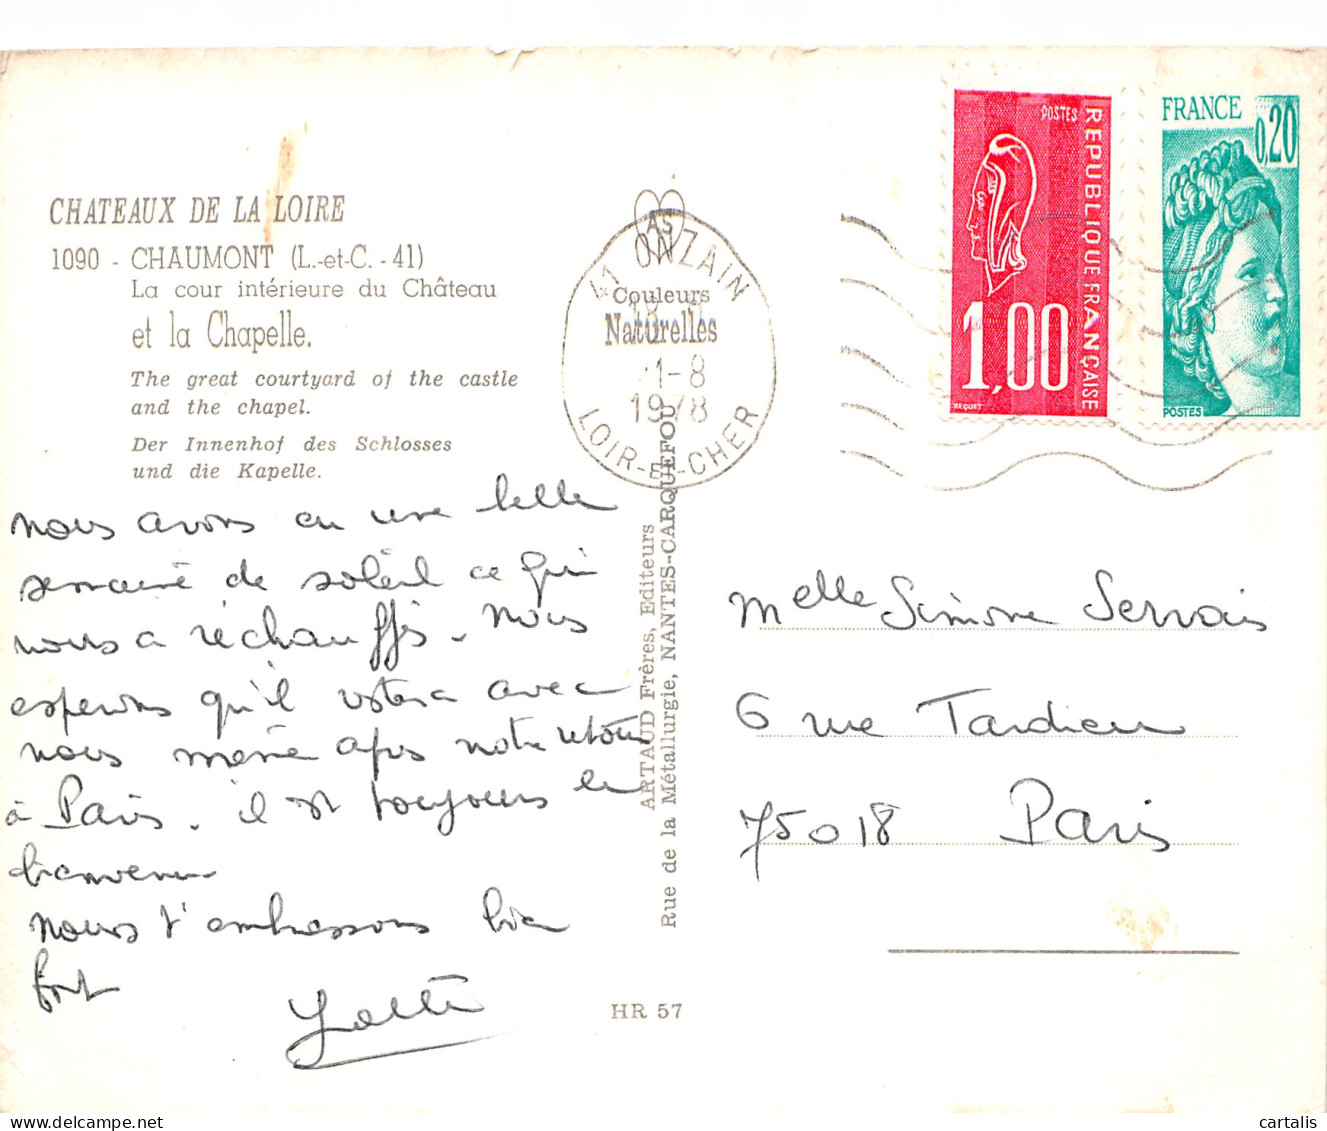 CHATEAUX DE LA LOIRE
1090 - CHAUMONT (L.-et-C. - 41)
La cour intérieure du Château
et la Chapelle.
The great courtyard of the castle
and the chapel.
Der Innenhof des Schlosses
und die Kapelle.
nous avons eu une belle
semaine de soleil ce qui
nous a réchauffés. Nous
esperons qu'il restera avec
nous même après notre retour
à Paris. il est toujours le
bienvenu
nous t'embrassons bien
fort
AS
Couleurs
Naturelles
41 ONZAIN
1-8
1978
LOIR-ET-CHER
ARTAUD Frères, Editeurs
Rue de la Métallurgie, NANTES-CARQUEFOU
HR 57
POSTES
REPUBLIQUE FRANÇAISE
1,00
BEQUET
FRANCE
0,20
POSTES
Melle Simone Servais
6 rue Tardieu
75018 Paris
cartalis